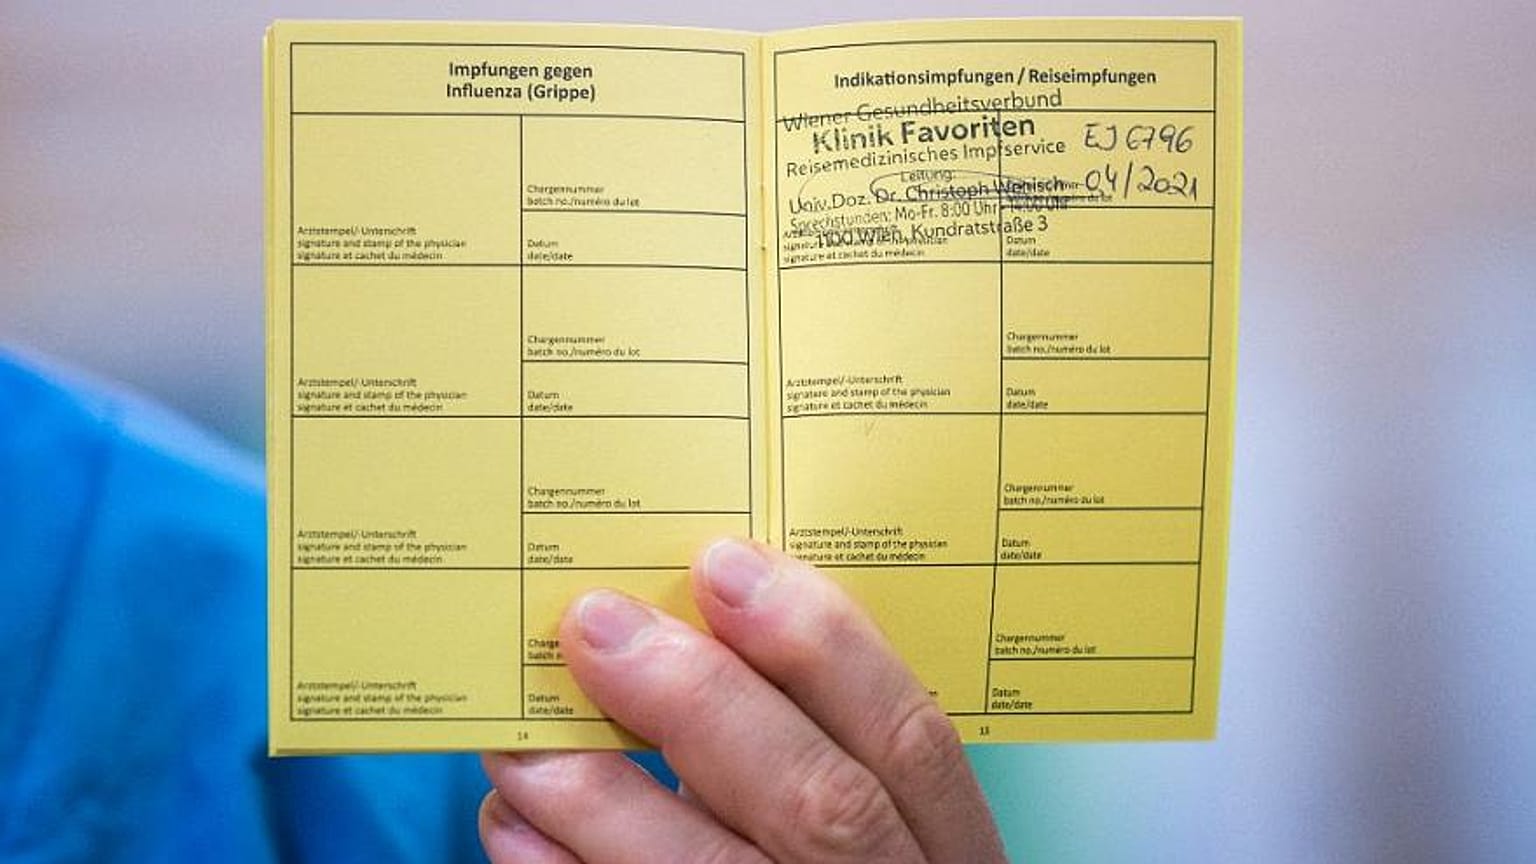 Impfungen gegen
Influenza (Grippe)
Chargennummer
batch no./numéro du lot
Arztstempel/-Unterschrift
signature and stamp of the physician
signature et cachet du médecin
Datum
date/date
Chargennummer
batch no./numéro du lot
Arztstempel/-Unterschrift
signature and stamp of the physician
signature et cachet du médecin
Datum
date/date
Chargennummer
batch no./numéro du lot
Arztstempel/-Unterschrift
signature and stamp of the physician
signature et cachet du médecin
Datum
date/date
Charge
batch n
Arztstempel/-Unterschrift
signature and stamp of the physician
signature et cachet du médecin
Datum
date/date
14
Indikationsimpfungen / Reiseimpfungen
Wiener Gesundheitsverbund
Klinik Favoriten
Reisemedizinisches Impfservice
Leitung:
Univ.Doz. Dr. Christoph Wenisch
Sprechstunden: Mo-Fr. 8:00 Uhr - 14:00 Uhr
1100 Wien, Kundratstraße 3
EJ6796
04/2021
signature et cachet du médecin
Datum
date/date
Chargennummer
batch no./numéro du lot
Arztstempel/-Unterschrift
signature and stamp of the physician
signature et cachet du médecin
Datum
date/date
Chargennummer
batch no./numéro du lot
Arztstempel/-Unterschrift
signature and stamp of the physician
signature et cachet du médecin
Datum
date/date
Chargennummer
batch no./numéro du lot
Datum
date/date